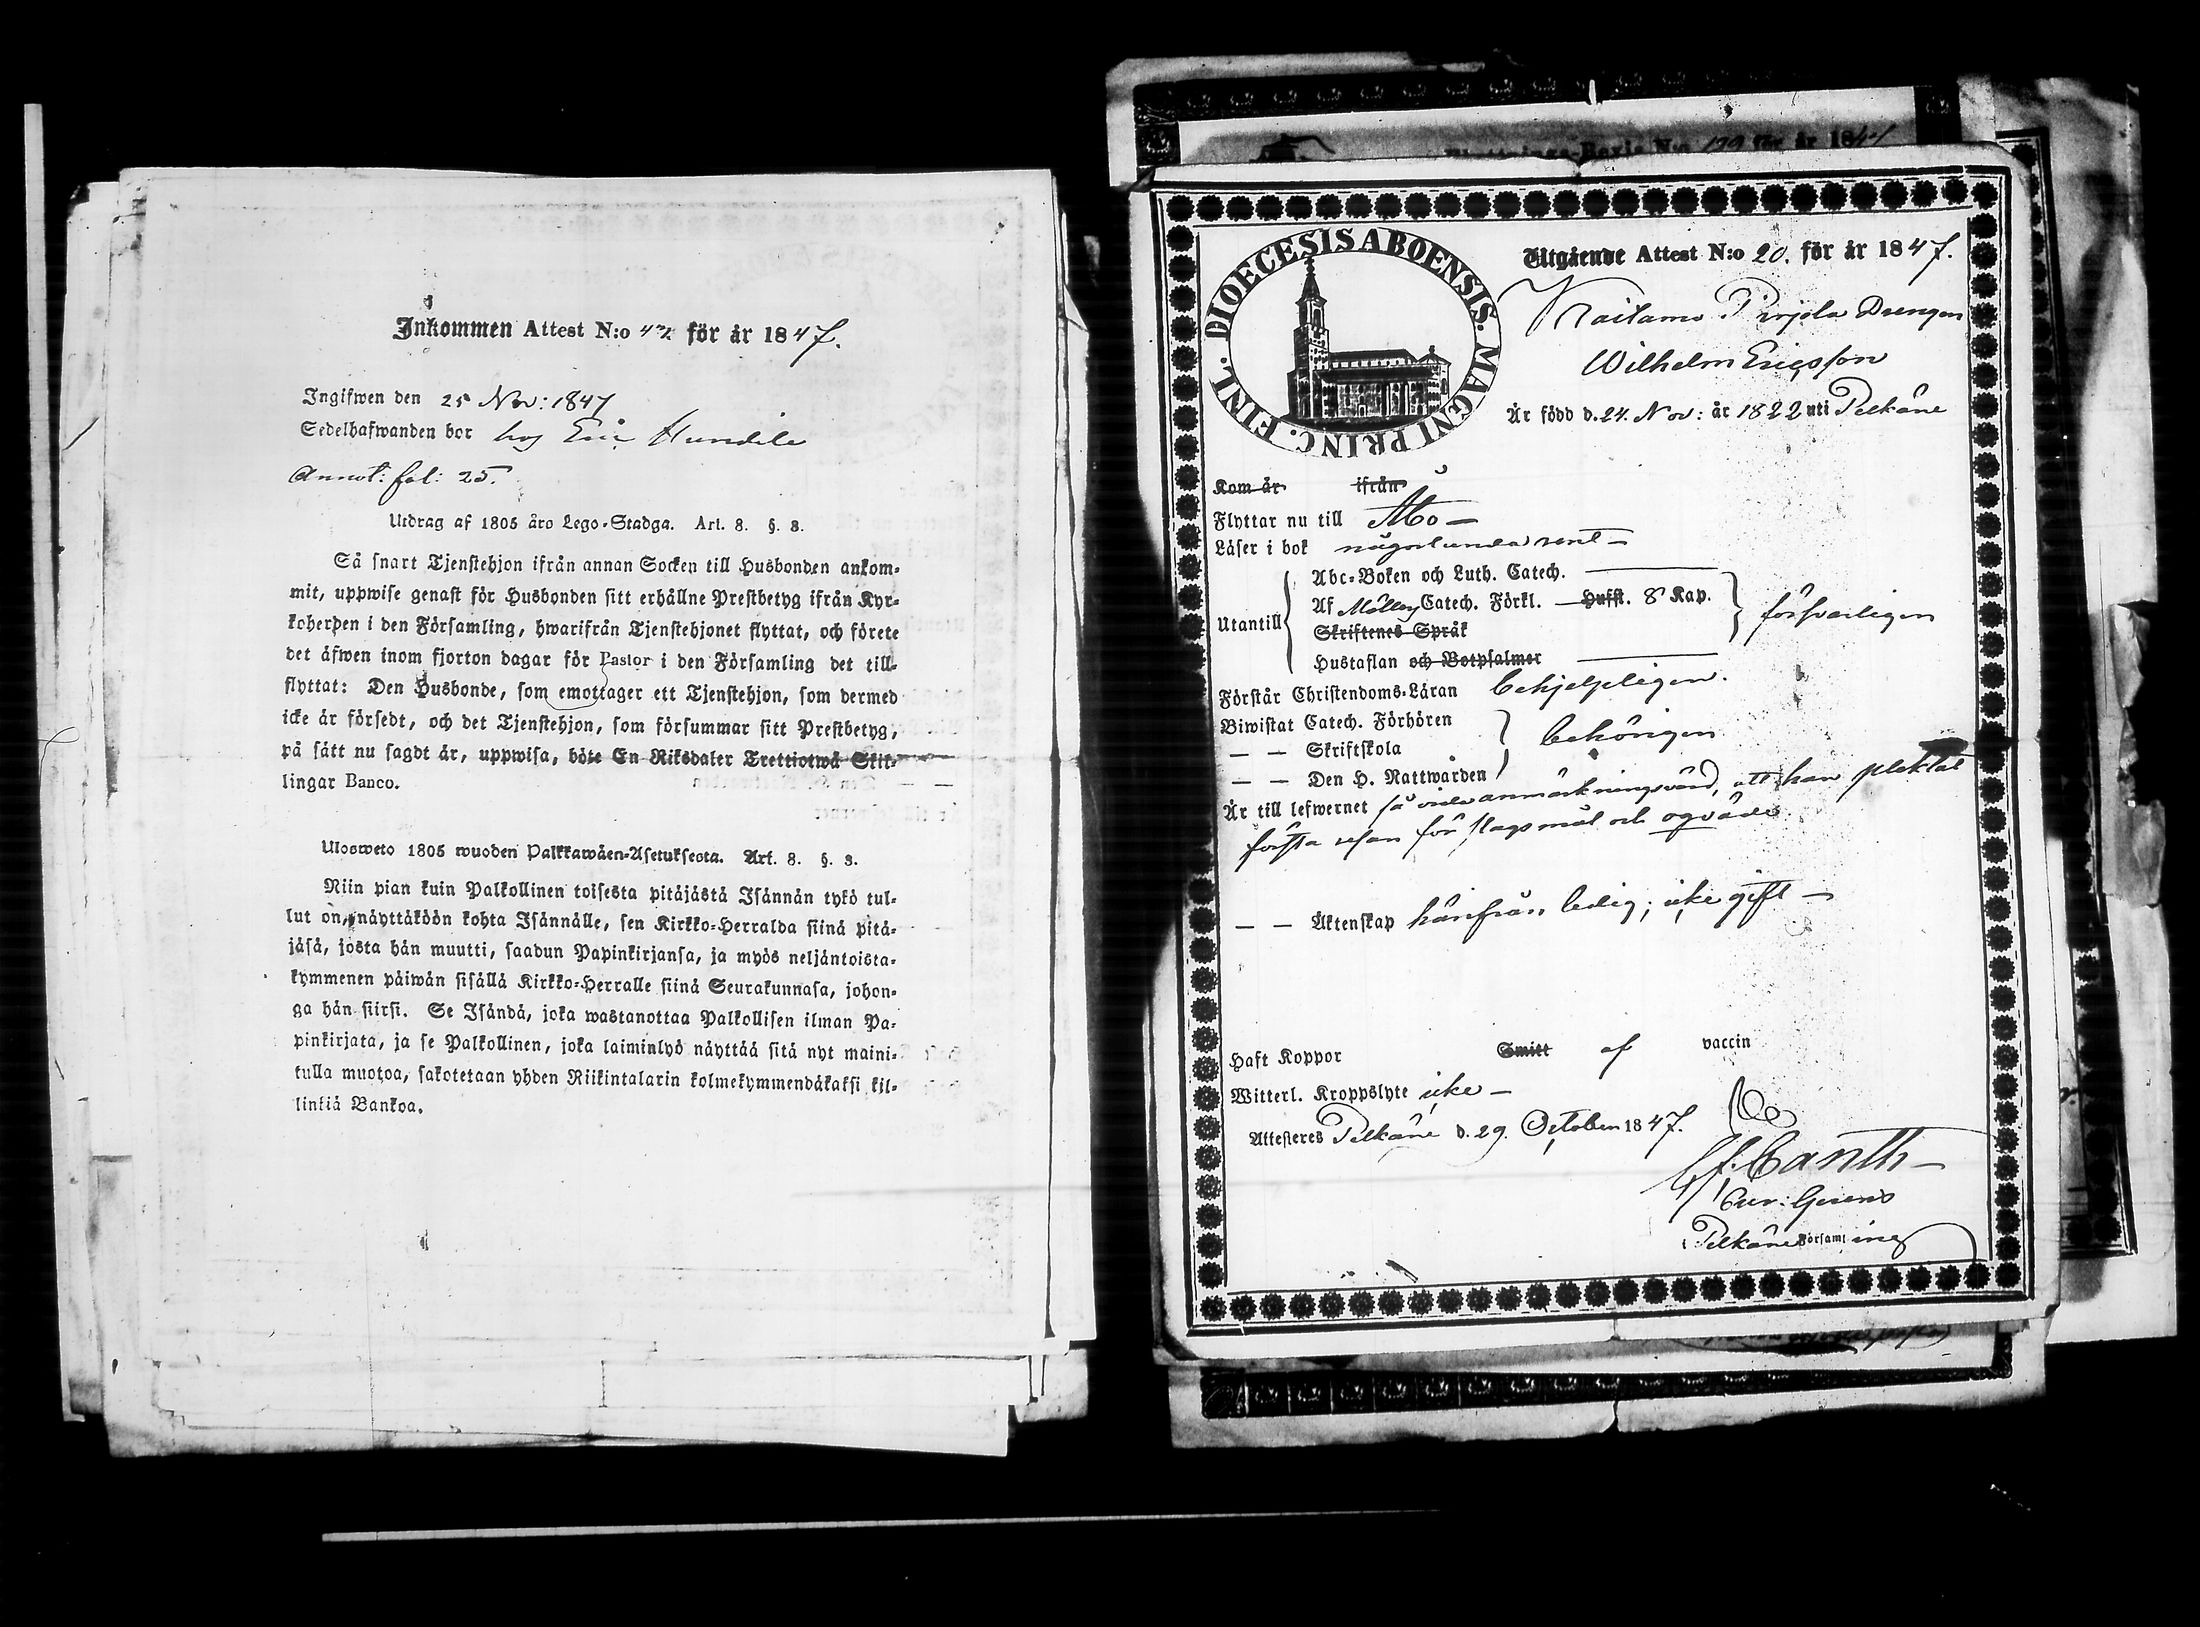 Inkommen Attest N:o 42 för år 1847.
Ingifwen den 25 Nov: 1847
Sedelhafwanden bor hos Eric Hundila
Annot: fol: 25.
Utdrag af 1805 års Lego-Stadga. Art. 8. §. 3.
Så snart Tjenstehjon ifrån annan Socken till Husbonden ankom-
mit, uppwise genast för Husbonden sitt erhållne Prestbetyg ifrån Kyr-
koherden i den Församling, hwarifrån Tjenstehjonet flyttat, och förete
det äfwen inom fjorton dagar för Pastor i den Församling det till-
flyttat: Den Husbonde, som emottager ett Tjenstehjon, som dermed
icke är försedt, och det Tjenstehjon, som försummar sitt Prestbetyg,
på sätt nu sagdt är, uppwisa, böte En Riksdaler Trettiotwå Skil-
lingar Banco.
Ulosweto 1805 wuoden Palkkawäen-Asetuksesta. Art. 8. §. 3.
Niin pian kuin Palkollinen toisesta pitäjästä Isännän tykö tul-
lut on, näyttäköön kohta Isännälle, sen Kirkko-Herralda siinä pitä-
jäsä, josta hän muutti, saadun Papinkirjansa, ja myös neljäntoista-
kymmenen päiwän sisällä Kirkko-Herralle siinä Seurakunnasa, johon-
ga hän siirsi. Se Isändä, joka wastanottaa Palkollisen ilman Pa-
pinkirjata, ja se Palkollinen, joka laiminlyö näyttää sitä nyt maini-
tulla muotoa, sakotetaan yhden Riikintalarin kolmekymmendäkaksi kil-
linkiä Bankoa.
Flyttnings-Betyg N:o 199 för år 1844
DIOECESIS ABOENSIS. MAGNI PRINC. FINL.
Utgående Attest N:o 20. för år 1847.
Raitamo Pirjola Drengen
Wilhelm Ericsson
Är född d. 24. Nov: år 1822 uti Pelkäne
Kom år ifrån
Flyttar nu till Åbo —
Läser i bok någorlunda rent —
Abc-Boken och Luth. Catech. ———
Af Möllers Catech. Förkl. — Hufst. 8 Kap.
Utantill försvarligen
Skriftenes Språk
Hustaflan och Botpsalmer ———
Förstår Christendoms-Läran behjelpligen.
Biwistat Catech. Förhören
— — Skriftskola behörigen
— — Den H. Nattwarden
Är till lefwernet så vida anmärkningsvärd, att han pliktat
första resan för slagsmål och oqväde
— — Äktenskap härifrån ledig; icke gift —
Haft Koppor Smitt af vaccin
Witterl. Kroppslyte icke —
Attesteres Pelkäne d. 29. October 1847.
Canth —
Cur: Gerens
Pelkäne Församling